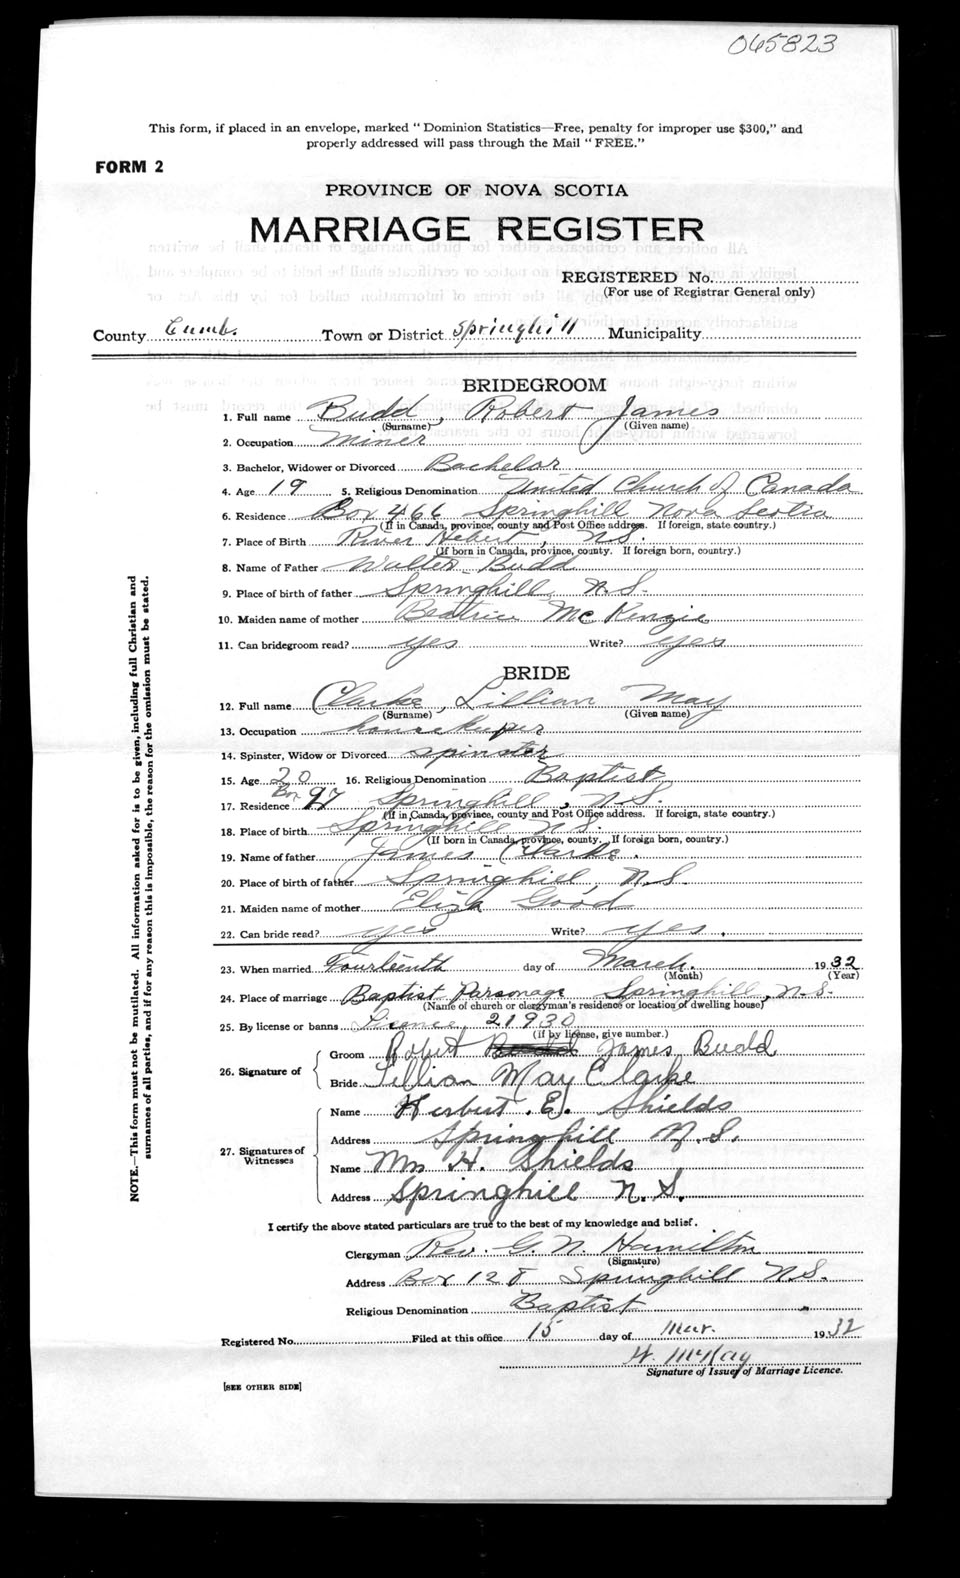 065823
This form, if placed in an envelope, marked “ Dominion Statistics—Free, penalty for improper use $300,” and
properly addressed will pass through the Mail “ FREE.”
FORM 2
PROVINCE OF NOVA SCOTIA
MARRIAGE REGISTER
REGISTERED No.
(For use of Registrar General only)
County Cumb. Town or District Springhill Municipality
BRIDEGROOM
1. Full name Budd, Robert James
(Surname) (Given name)
2. Occupation Miner
3. Bachelor, Widower or Divorced Bachelor
4. Age 19 5. Religious Denomination United Church of Canada
6. Residence Box 466 Springhill Nova Scotia
(If in Canada, province, county and Post Office address. If foreign, state country.)
7. Place of Birth River Hebert, N.S.
(If born in Canada, province, county. If foreign born, country.)
8. Name of Father Walter Budd
9. Place of birth of father Springhill N.S.
10. Maiden name of mother Beatrice McKenzie
11. Can bridegroom read? yes Write? yes
BRIDE
12. Full name Clarke, Lillian May
(Surname) (Given name)
13. Occupation housekeeper
14. Spinster, Widow or Divorced spinster
15. Age 20 16. Religious Denomination Baptist
17. Residence Box 97 Springhill, N.S.
(If in Canada, province, county and Post Office address. If foreign, state country.)
18. Place of birth Springhill N.S.
(If born in Canada, province, county. If foreign born, country.)
19. Name of father James Clarke.
20. Place of birth of father Springhill, N.S.
21. Maiden name of mother Eliza Good
22. Can bride read? yes Write? yes.
23. When married Fourteenth day of March. 1932
(Month) (Year)
24. Place of marriage Baptist Parsonage Springhill, N.S.
(Name of church or clergyman's residence or location of dwelling house)
25. By license or banns License, 21930
(if by license, give number.)
26. Signature of
Groom Robert James Budd
Bride Lillian May Clarke
27. Signatures of Witnesses
Name Herbert. E. Shields
Address Springhill N.S.
Name Mrs H. Shields
Address Springhill N.S.
I certify the above stated particulars are true to the best of my knowledge and belief.
Clergyman Rev. G. N. Hamilton
(Signature)
Address Box 128 Springhill N.S.
Religious Denomination Baptist
Registered No. Filed at this office 15 day of Mar. 1932
Signature of Issuer of Marriage Licence.
[SEE OTHER SIDE]
NOTE.—This form must not be mutilated. All information asked for is to be given, including full Christian and
surnames of all parties, and if for any reason this is impossible, the reason for the omission must be stated.